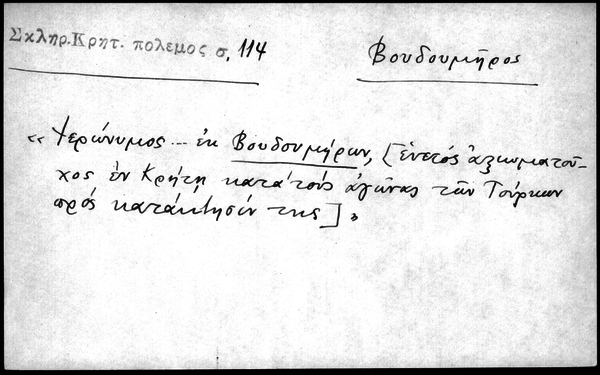 Σκληρ. Κρητ. πολεμος σ. 114
Βουδουμῆρος
« Ἱερώνυμος ... ἐκ Βουδουμήρων, [ἐνετός ἀξιωματοῦ-
χος ἐν Κρήτῃ κατά τούς ἀγῶνας τῶν Τούρκων
πρός κατάκτησίν της] »